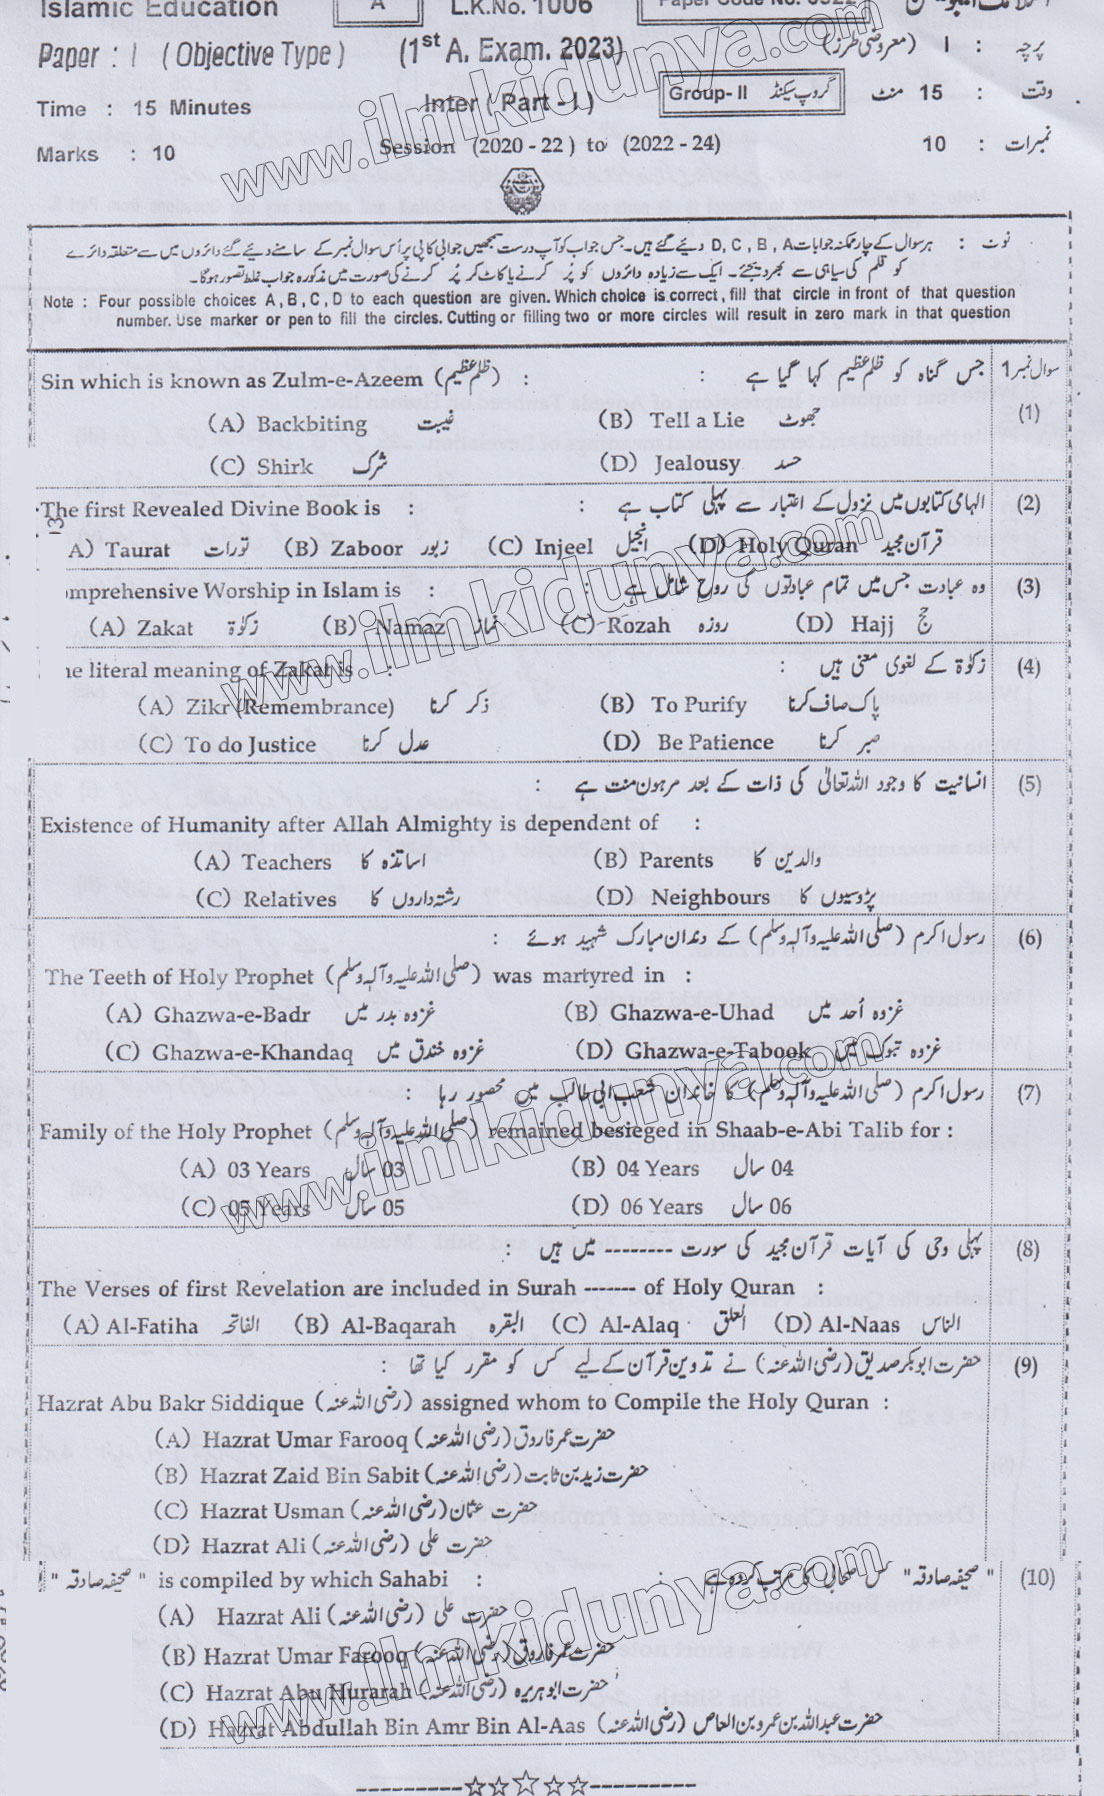 Islamic Education
A
L.K.No. 1006
Paper Code No.
Paper : I ( Objective Type )
(1st A. Exam. 2023)
پرچہ : I (معروضی طرز)
Time : 15 Minutes
Inter ( Part - I )
Group- II گروپ سیکنڈ
وقت : 15 منٹ
Marks : 10
Session (2020 - 22 ) to (2022 - 24)
نمبرات : 10
نوٹ : ہر سوال کے چار ممکنہ جوابات D, C, B, A دیئے گئے ہیں۔ جس جواب کو آپ درست سمجھیں جوابی کاپی پر اُس سوال نمبر کے سامنے دیئے گئے دائروں میں سے متعلقہ دائرے
کو قلم کی سیاہی سے بھر دیجئے۔ ایک سے زیادہ دائروں کو پُر کرنے یا کاٹ کر پُر کرنے کی صورت میں مذکورہ جواب غلط تصور ہوگا۔
Note : Four possible choices A , B , C , D to each question are given. Which choice is correct , fill that circle in front of that question
number. Use marker or pen to fill the circles. Cutting or filling two or more circles will result in zero mark in that question
سوال نمبر 1
(1) جس گناہ کو ظلم عظیم کہا گیا ہے :
Sin which is known as Zulm-e-Azeem (ظلم عظیم) :
(A) Backbiting غیبت (B) Tell a Lie جھوٹ
(C) Shirk شرک (D) Jealousy حسد
(2) الہامی کتابوں میں نزول کے اعتبار سے پہلی کتاب ہے :
The first Revealed Divine Book is :
A) Taurat تورات (B) Zaboor زبور (C) Injeel انجیل (D) Holy Quran قرآن مجید
(3) وہ عبادت جس میں تمام عبادتوں کی روح شامل ہے :
mprehensive Worship in Islam is :
(A) Zakat زکوٰۃ (B) Namaz نماز (C) Rozah روزہ (D) Hajj حج
(4) زکوٰۃ کے لغوی معنی ہیں :
he literal meaning of Zakat is :
(A) Zikr (Remembrance) ذکر کرنا (B) To Purify پاک صاف کرنا
(C) To do Justice عدل کرنا (D) Be Patience صبر کرنا
(5) انسانیت کا وجود اللہ تعالیٰ کی ذات کے بعد مرہون منت ہے :
Existence of Humanity after Allah Almighty is dependent of :
(A) Teachers اساتذہ کا (B) Parents والدین کا
(C) Relatives رشتہ داروں کا (D) Neighbours پڑوسیوں کا
(6) رسول اکرم (صلی اللہ علیہ وآلہ وسلم) کے دندان مبارک شہید ہوئے :
The Teeth of Holy Prophet (صلی اللہ علیہ وآلہ وسلم) was martyred in :
(A) Ghazwa-e-Badr غزوہ بدر میں (B) Ghazwa-e-Uhad غزوہ اُحد میں
(C) Ghazwa-e-Khandaq غزوہ خندق میں (D) Ghazwa-e-Tabook غزوہ تبوک میں
(7) رسول اکرم (صلی اللہ علیہ وآلہ وسلم) کا خاندان شعب ابی طالب میں محصور رہا :
Family of the Holy Prophet (صلی اللہ علیہ وآلہ وسلم) remained besieged in Shaab-e-Abi Talib for :
(A) 03 Years 03 سال (B) 04 Years 04 سال
(C) 05 Years 05 سال (D) 06 Years 06 سال
(8) پہلی وحی کی آیات قرآن مجید کی سورت -------- میں ہیں :
The Verses of first Revelation are included in Surah ------- of Holy Quran :
(A) Al-Fatiha الفاتحہ (B) Al-Baqarah البقرہ (C) Al-Alaq العلق (D) Al-Naas الناس
(9) حضرت ابوبکر صدیق (رضی اللہ عنہ) نے تدوین قرآن کے لیے کس کو مقرر کیا تھا :
Hazrat Abu Bakr Siddique (رضی اللہ عنہ) assigned whom to Compile the Holy Quran :
(A) Hazrat Umar Farooq (رضی اللہ عنہ) حضرت عمر فاروق
(B) Hazrat Zaid Bin Sabit (رضی اللہ عنہ) حضرت زید بن ثابت
(C) Hazrat Usman (رضی اللہ عنہ) حضرت عثمان
(D) Hazrat Ali (رضی اللہ عنہ) حضرت علی
(10) "صحیفہ صادقہ" کس صحابی کا مرتب کردہ ہے :
"صحیفہ صادقہ" is compiled by which Sahabi :
(A) Hazrat Ali (رضی اللہ عنہ) حضرت علی
(B) Hazrat Umar Farooq (رضی اللہ عنہ) حضرت عمر فاروق
(C) Hazrat Abu Hurarah (رضی اللہ عنہ) حضرت ابوہریرہ
(D) Hazrat Abdullah Bin Amr Bin Al-Aas (رضی اللہ عنہ) حضرت عبداللہ بن عمرو بن العاص
www.ilmkidunya.com
www.ilmkidunya.com
www.ilmkidunya.com
www.ilmkidunya.com